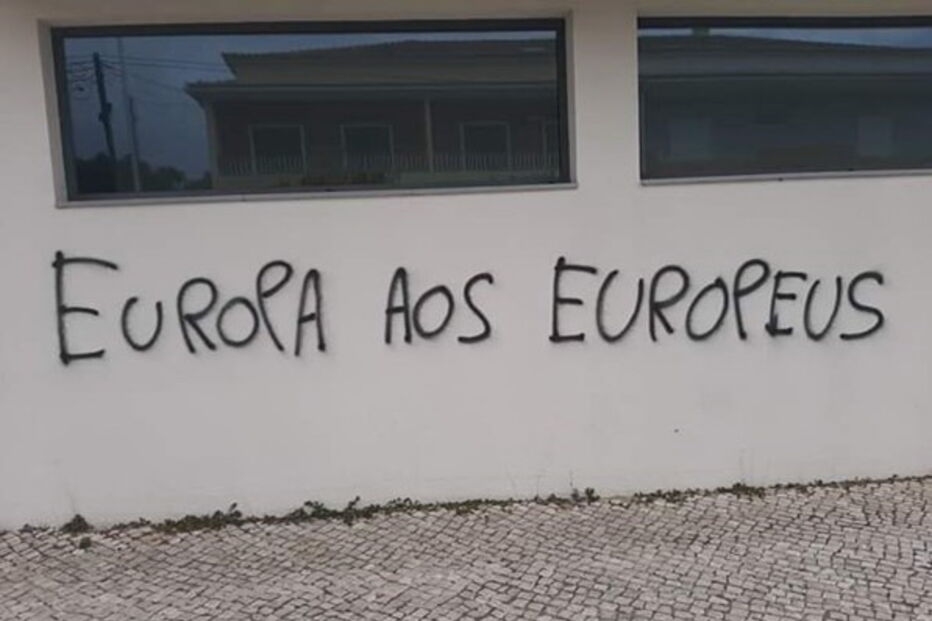 EUROPA AOS EUROPEUS